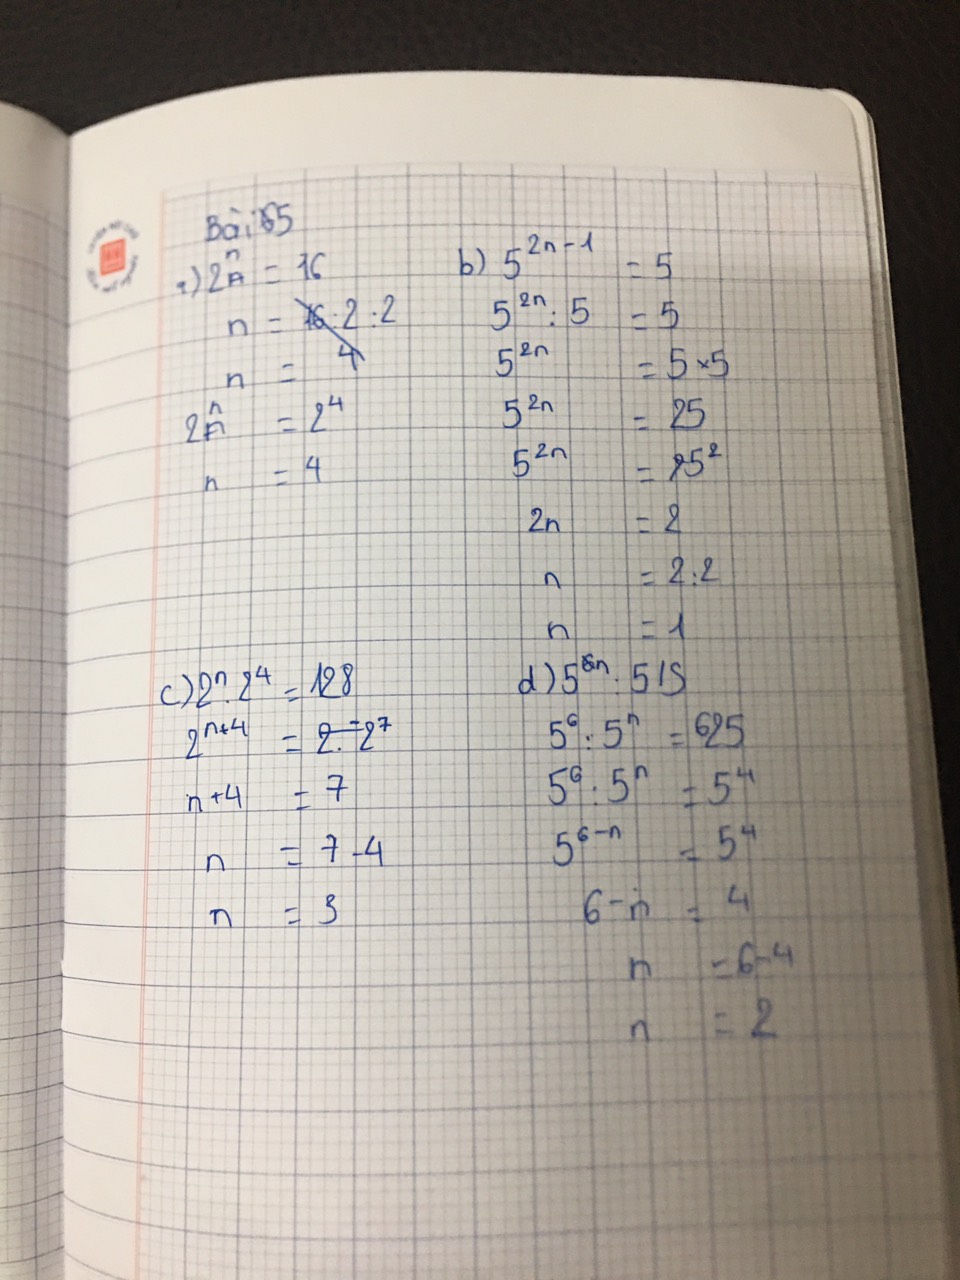 Bài 65
a) 2ⁿ = 16
n = 16:2:2
n = 4
2ⁿ = 2⁴
n = 4
b) 5²ⁿ⁻¹ = 5
5²ⁿ : 5 = 5
5²ⁿ = 5 × 5
5²ⁿ = 25
5²ⁿ = 5²
2n = 2
n = 2:2
n = 1
c) 2ⁿ . 2⁴ = 128
2ⁿ⁺⁴ = 2⁷
n + 4 = 7
n = 7 - 4
n = 3
d) 5⁶
5⁶ : 5ⁿ = 625
5⁶ : 5ⁿ = 5⁴
5⁶⁻ⁿ = 5⁴
6 - n = 4
n = 6 - 4
n = 2